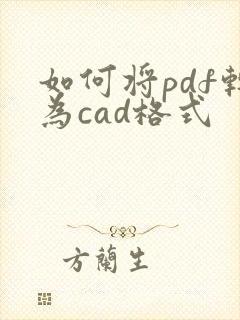 如何将pdf
為cad格式
方蘭生